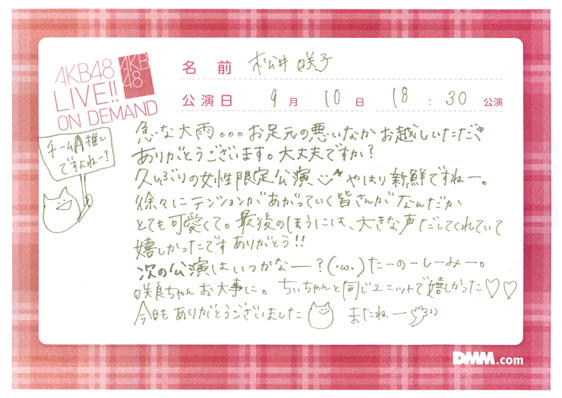 AKB48
LIVE!!
ON DEMAND
AKB
48
名前 松井咲子
公演日 9月10日 18:30公演
チームA推し
ですよねー?
急な大雨。。。お足元の悪いなかお越しいただき
ありがとうございます。大丈夫ですか?
久しぶりの女性限定公演 やはり新鮮ですねー。
徐々にテンションがあがっていく皆さんがなんだか
とても可愛くて。最後のほうには、大きな声だしてくれていて
嬉しかったです ありがとう!!
次の公演はいつかなー?(・ω・)たーのーしーみー。
咲良ちゃんお大事に。ちぃちゃんと同じユニットで嬉しかった♡♡
今日もありがとうございました またねー
DMM.com